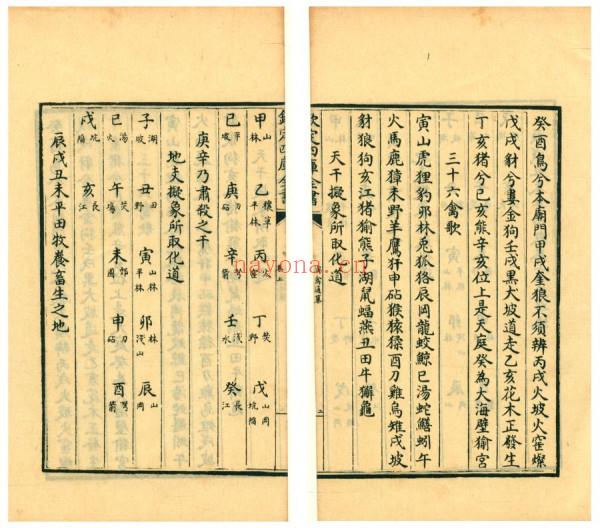 癸酉烏兮本廟門甲戌奎狼不須辨丙戌火坡火窑燦
戊戌豺兮婁金狗壬戌黑犬坡道走乙亥花木正發生
丁亥猪兮己亥熊辛亥位上是天庭癸為大海壁㺄宮
三十六禽歌
寅山虎狸豹卯林兎狐狢辰岡龍蛟鯨巳湯蛇鱔蚓午
火馬鹿獐未野羊鷹犴申砧猴猿猱酉刀雞烏雉戌坡
豺狼狗亥江猪㺄熊子湖鼠蝠燕丑田牛獬龜
天干擬象所取化道
欽定四庫全書
甲山林 乙穰草平林 丙 丁焚野 戊山岡坑堝
己 庚 辛 壬淺水 癸長江
火庚辛乃肅殺之干
地支擬象所取化道
子湖坡 丑田野 寅山林平林 卯林淺山 辰山岡
巳湯火 午焚 未郊園 申砧 酉
戌坑 亥長江
辰戌丑未平田牧養畜生之地
nayona.cn